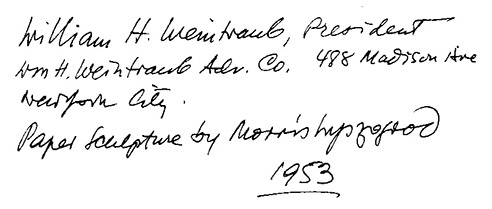 William H. Weintraub, President
Wm H. Weintraub Adv. Co. 488 Madison Ave
New York City.
Paper Sculpture by Morris Lyszogrod
1953